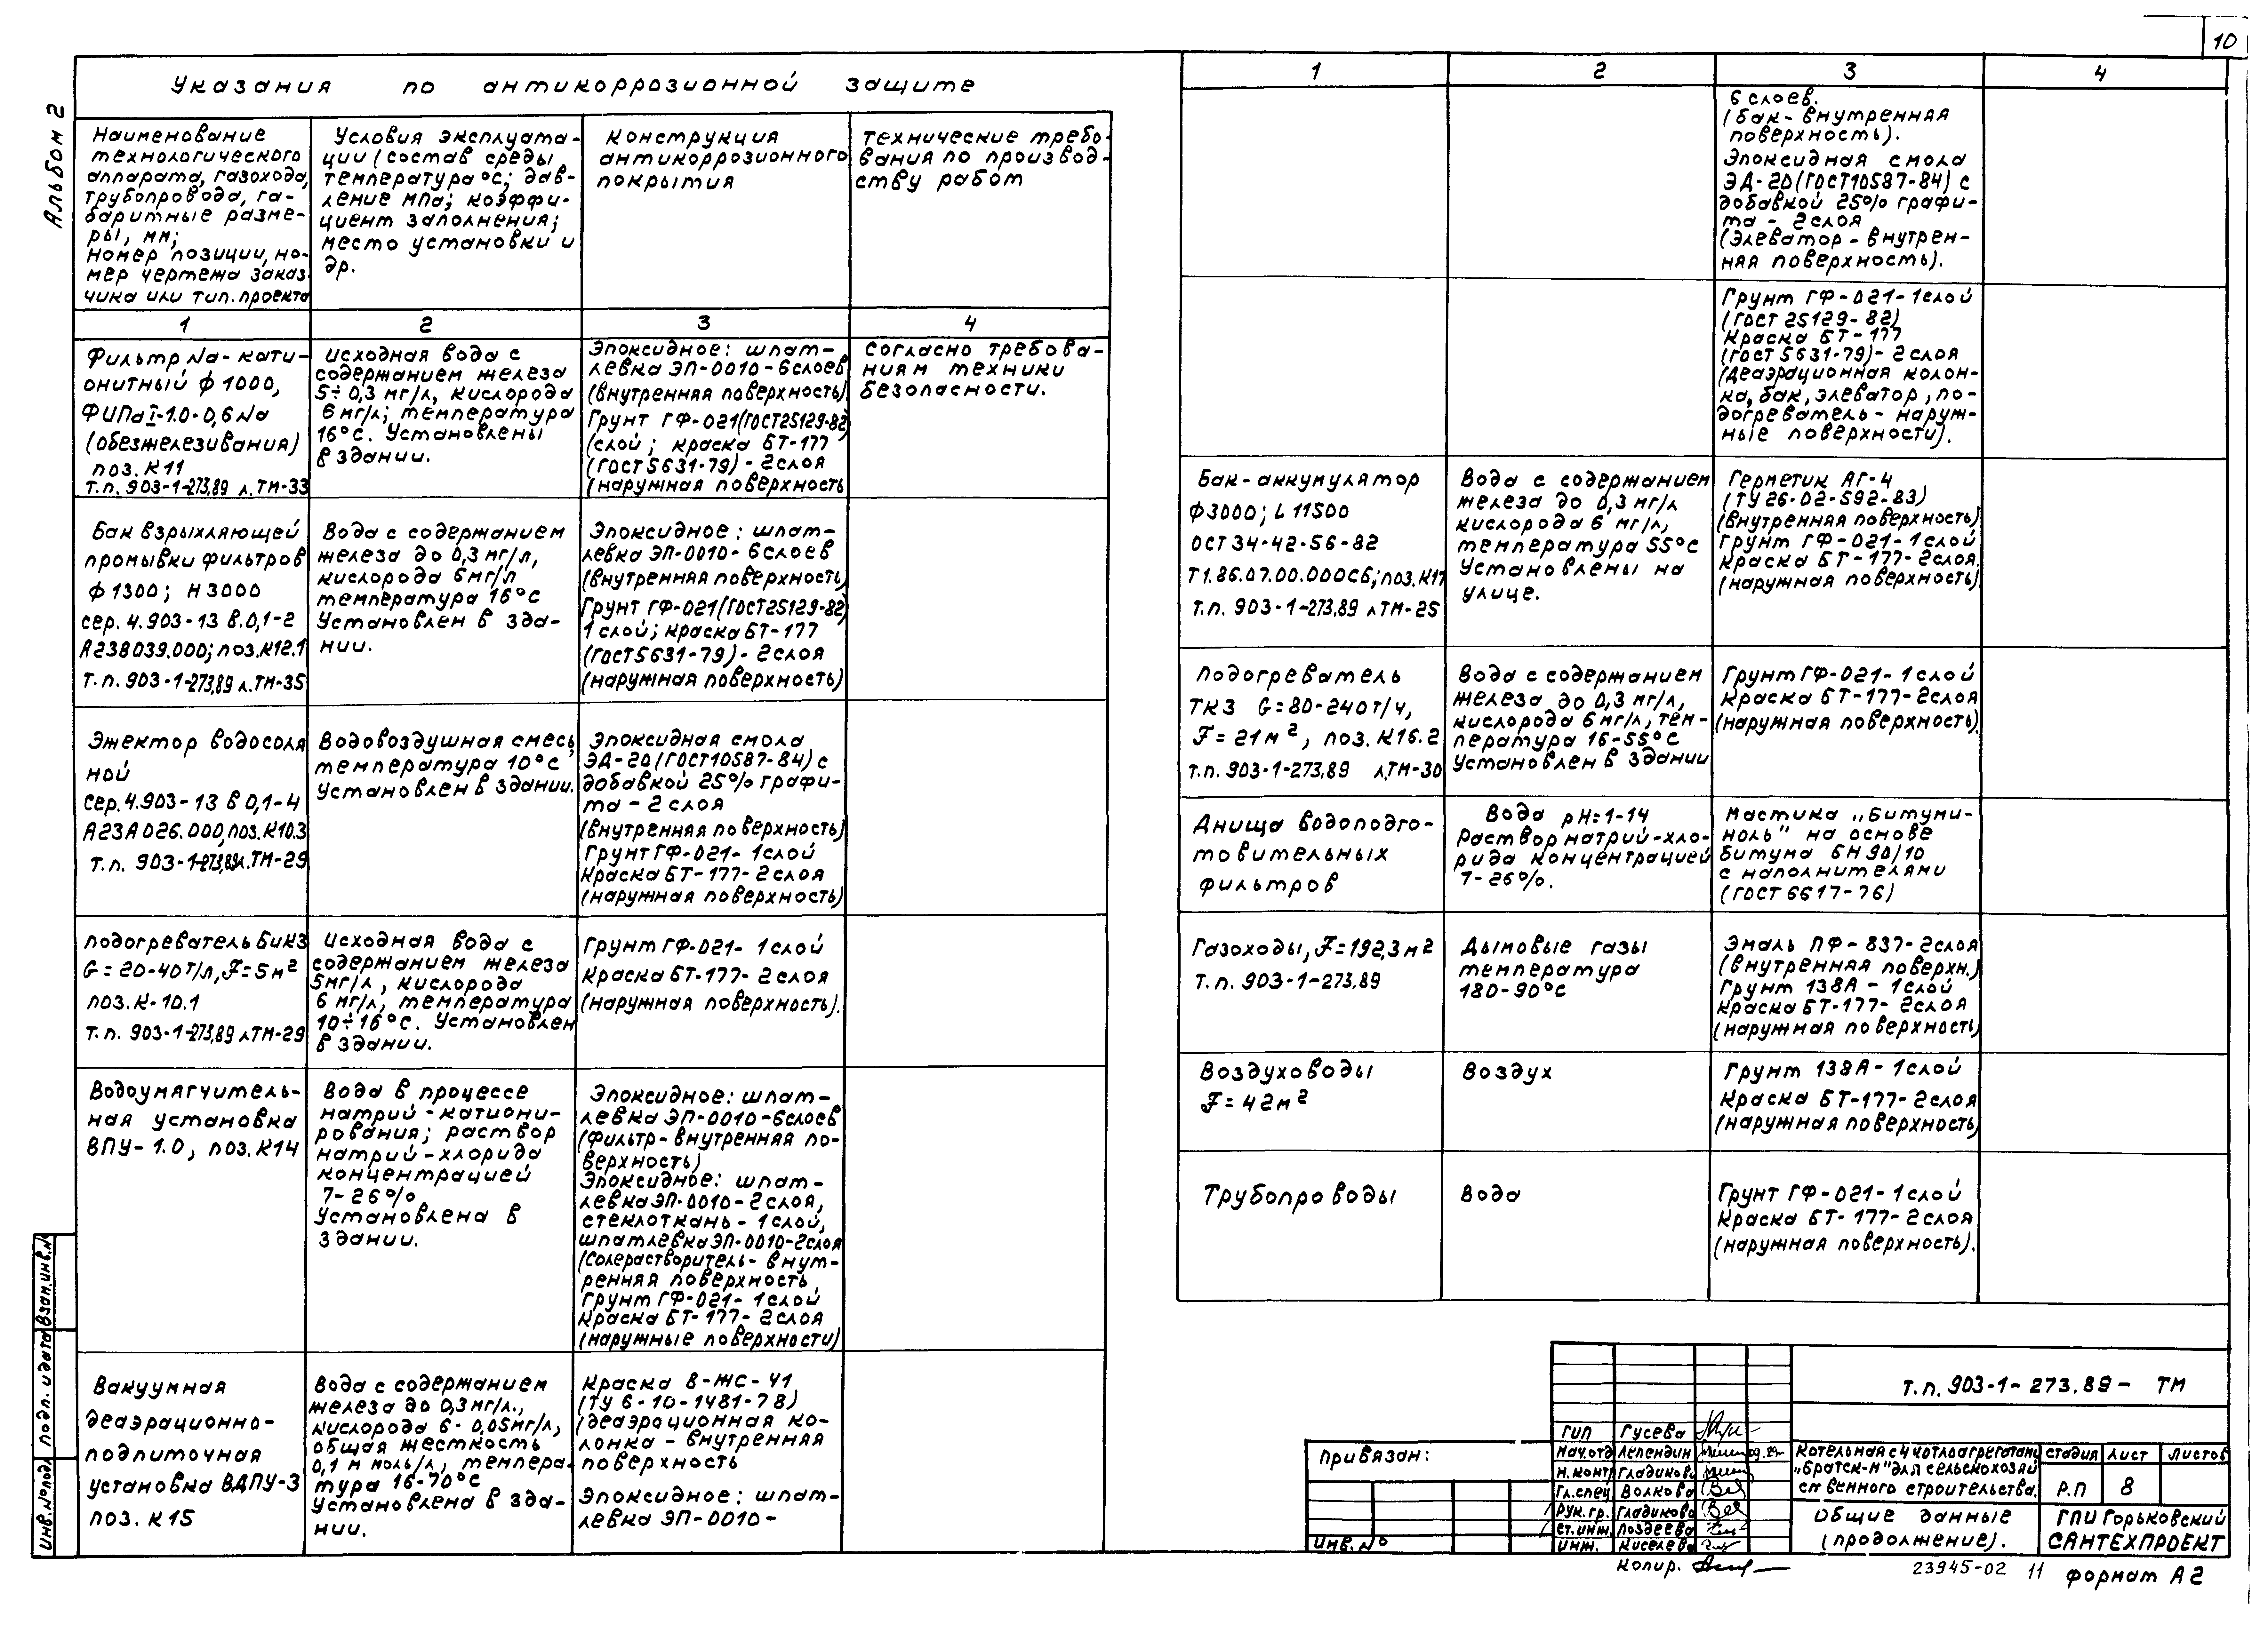 10
Альбом 2
Указания по антикоррозионной защите
Наименование
технологического
аппарата, газохода,
трубопровода, га-
баритные разме-
ры, мм;
Номер позиции, но-
мер чертежа заказ-
чика или тип. проекта
Условия эксплуата-
ции (состав среды
температура °С; дав-
ление МПа; коэффи-
циент заполнения;
место установки и
др.
Конструкция
антикоррозионного
покрытия
Технические требо-
вания по производ-
ству работ
1 2 3 4
Фильтр Na-кати-
онитный ф 1000,
ФИПа I-1.0-0,6 Na
(обезжелезивания)
поз. К11
т.п. 903-1-273.89 л.ТМ-33
Исходная вода с
содержанием железа
5÷0,3 мг/л, кислорода
6 мг/л; температура
16°С. Установлены
в здании.
Эпоксидное: шпат-
левка ЭП-0010-6слоев
(внутренняя поверхность)
Грунт ГФ-021(ГОСТ25129-82)
(слой; краска БТ-177
(ГОСТ 5631-79)-2слоя
(наружная поверхность
Согласно требова-
ниям техники
безопасности.
Бак взрыхляющей
промывки фильтров
ф 1300; H 3000
сер. 4.903-13 в.0,1-2
А23В039.000; поз.К12.1
т.п. 903-1-273.89 л.ТМ-35
Вода с содержанием
железа до 0,3 мг/л,
кислорода 6мг/л
температура 16°С
Установлен в зда-
нии.
Эпоксидное: шпат-
левка ЭП-0010-6слоев
(внутренняя поверхность)
Грунт ГФ-021(ГОСТ25129-82)
1 слой; краска БТ-177
(ГОСТ5631-79)-2слоя
(наружная поверхность)
Эжектор водосоля
ной
Сер. 4.903-13 в 0,1-4
А23А026.000, поз.К10.3
т.п. 903-1-273.89 л.ТМ-29
Водовоздушная смесь,
температура 10°С
Установлен в здании.
Эпоксидная смола
ЭД-20(ГОСТ10587-84) с
добавкой 25% графи-
та - 2 слоя
(внутренняя поверхность)
Грунт ГФ-021-1слой
Краска БТ-177-2слоя
(наружная поверхность)
Подогреватель БиКЗ
G=20-40т/л, F=5м²
поз. К-10.1
т.п. 903-1-273.89 л.ТМ-29
Исходная вода с
содержанием железа
5мг/л, кислорода
6 мг/л, температура
10÷16°С. Установлен
в здании.
Грунт ГФ-021-1слой
Краска БТ-177-2слоя
(наружная поверхность).
Водоумягчитель-
ная установка
ВПУ-1.0, поз. К14
Вода в процессе
натрий-катиони-
рования; раствор
натрий-хлорида
концентрацией
7-26%
Установлена в
здании.
Эпоксидное: шпат-
левка ЭП-0010-6слоев
(Фильтр-внутренняя по-
верхность)
Эпоксидное: шпат-
левка ЭП-0010-2слоя,
стеклоткань-1слой,
шпатлевка ЭП-0010-2слоя
(Солерастворитель-внут-
ренняя поверхность
Грунт ГФ-021-1слой
Краска БТ-177-2слоя
(наружные поверхности)
Вакуумная
деаэрационно-
подпиточная
установка ВДПУ-3
поз. К15
Вода с содержанием
железа до 0,3мг/л.,
кислорода 6-0,05мг/л,
общая жесткость
0,1 м моль/л, темпера-
тура 16-70°С
Установлена в зда-
нии.
Краска В-ЖС-41
(ТУ 6-10-1481-78)
(деаэрационная ко-
лонка - внутренняя
поверхность
Эпоксидное: шпат-
левка ЭП-0010-
1 2 3 4
6 слоев.
(бак-внутренняя
поверхность).
Эпоксидная смола
ЭД-20(ГОСТ10587-84) с
добавкой 25% графи-
та - 2слоя
(Элеватор-внутрен-
няя поверхность).
Грунт ГФ-021-1слой
(ГОСТ 25129-82)
Краска БТ-177
(ГОСТ 5631-79)-2слоя
(деаэрационная колон-
ка, бак, элеватор, по-
догреватель-наруж-
ные поверхности).
Бак-аккумулятор
ф3000; L 11500
ОСТ 34-42-56-82
Т1.86.07.00.000СБ; поз.К17
т.п. 903-1-273.89 л ТМ-25
Вода с содержанием
железа до 0,3 мг/л
кислорода 6 мг/л,
температура 55°С
Установлены на
улице.
Герметик АГ-4
(ТУ 26-02-592-83)
(внутренняя поверхность)
Грунт ГФ-021-1слой
Краска БТ-177-2слоя.
(наружная поверхность).
Подогреватель
ТКЗ G=80-240т/ч,
F=21м², поз. К16.2
т.п. 903-1-273.89 л.ТМ-30
Вода с содержанием
железа до 0,3 мг/л,
кислорода 6мг/л, тем-
пература 16-55°С
Установлен в здании
Грунт ГФ-021-1слой
Краска БТ-177-2слоя
(наружная поверхность).
Днища водоподго-
товительных
фильтров
Вода рН=1-14
Раствор натрий-хло-
рида концентрацией
7-26%.
Мастика „Битуми-
ноль" на основе
битума БН 90/10
с наполнителями
(ГОСТ 6617-76)
Газоходы, F=192,3м²
т.п. 903-1-273.89
Дымовые газы
температура
180-90°С
Эмаль ПФ-837-2слоя
(внутренняя поверхн.)
Грунт 138А-1слой
Краска БТ-177-2слоя
(наружная поверхность)
Воздуховоды
F=42м²
Воздух
Грунт 138А-1слой
Краска БТ-177-2слоя
(наружная поверхность)
Трубопроводы
Вода
Грунт ГФ-021-1слой
Краска БТ-177-2слоя
(наружная поверхность).
Инв.№подл. Подп. и дата Взам.инв.№
Привязан:
Инв. №
ГИП Гусева
Нач.отд Лепендин 09.89г
Н.контр Гладикова
Гл.спец. Волкова
Рук.гр. Гладикова
Ст.инж. Поздеева
Инж. Киселева
т.п. 903-1-273.89- ТМ
Котельная с 4 котлоагрегатами
„Братск-М" для сельскохозяй
ственного строительства.
Стадия Лист Листов
Р.П 8
Общие данные
(продолжение).
ГПИ Горьковский
САНТЕХПРОЕКТ
Копир.
23945-02 11 формат А2